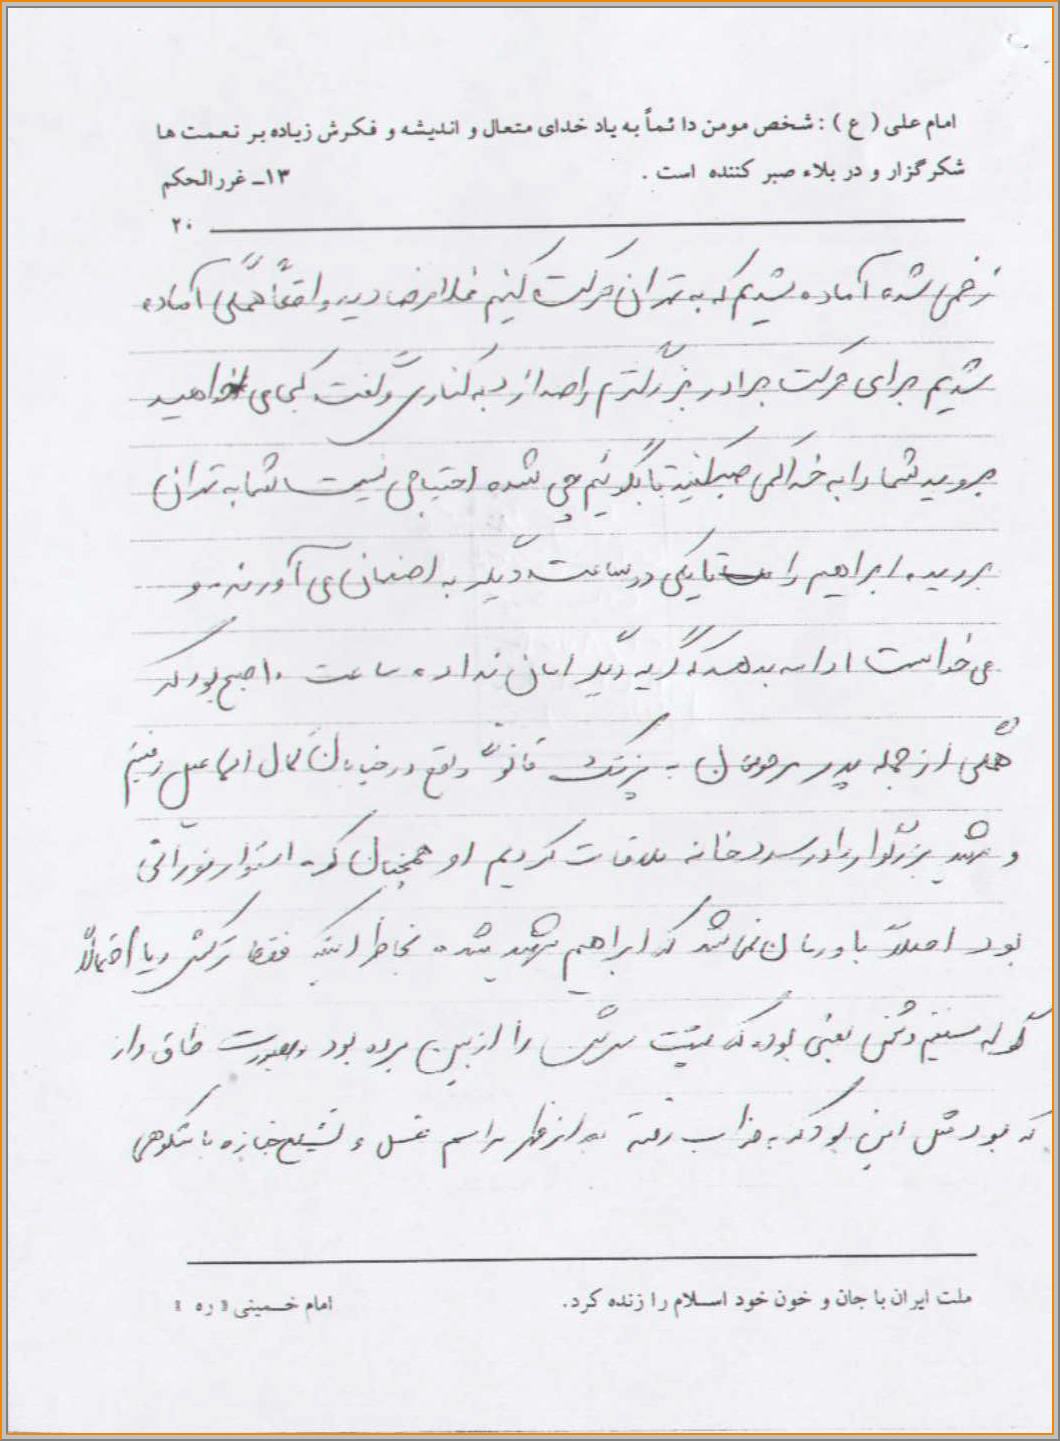 امام علی ( ع ) : شخص مومن دائماً به یاد خدای متعال و اندیشه و فکرش زیاده بر نعمت ها
شکرگزار و در بلاء صبر کننده است . ۱۳ـ غررالحکم
۲۰
زخمی شده آماده شدیم که به تهران حرکت کنیم غلامرضا دید واقعاً همگی آماده
شدیم برای حرکت برادر بزرگترم را صدا زد به کناری و گفت کجا می خواهید
بروید شما را به خدا کمی صبر کنید تا بگوئیم چی شده احتیاجی نیست شما به تهران
بروید ابراهیم را تا یکی دو ساعت دیگر به اصفهان می آورند و
می خواست ادامه بدهد که گریه دیگر امان نداد ساعت ۱۰ صبح بود که
همگی از جمله پدر مرحوممان به پزشک قانونی واقع در خیابان کمال اسماعیل رفتیم
و شهید بزرگوار را در سردخانه ملاقات کردیم او همچنان که استوار نورانی
بود اصلاً باورمان نمی شد که ابراهیم شهید شده بخاطر اینکه فقط ترکش و یا احتمالاً
گوله مستقیم دشمن بعثی بوده که پشت سرش را از بین برده بود و بصورت طاق واز
که بود مثل این بود که به خواب رفته بعد از ظهر مراسم غسل و تشییع جنازه با شکوهی
ملت ایران با جان و خون خود اسلام را زنده کرد. امام خمینی «ره»